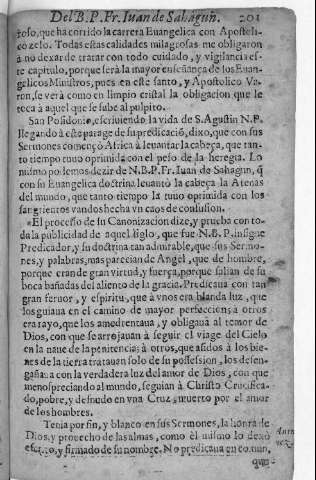 Del B. P. Fr. Iuan de Sahagun. 201
toso, que ha corrido la carrera Euangelica con Apostoli-
co zelo. Todas estas calidades milagrosas me obligaron
a no dexar de tratar con todo cuidado, y vigilancia es-
te capitulo, porque serà la mayor enseñança de los Euan-
gelicos Ministros, pues en este santo, y Apostolico Va-
ron, se verà como en limpio cristal la obligacion que le
toca à aquel que se sube al pulpito.
San Posidonio, escriuiendo la vida de S. Agustin N. P.
llegando à este parage de su predicaciõ, dixo, que con sus
Sermones començò Africa à leuantar la cabeça, que tan-
to tiempo tuuo oprimida con el peso de la heregia. Lo
mismo podemos dezir de N. B. P. Fr. Iuan de Sahagun, q̃
con su Euangelica doctrina leuantò la cabeça la Atenas
del mundo, que tanto tiempo la tuuo oprimida con los
sangrientos vandos hecha vn caos de confusion.
El processo de su Canonizacion dize, y prueba con to-
da la publicidad de aquel siglo, que fue N. B. P. insigne
Predicador, y su doctrina tan admirable, que sus Sermo-
nes, y palabras, mas parecian de Angel, que de hombre,
porque eran de gran virtud, y fuerça, porque salian de su
boca bañadas del aliento de la gracia. Predicaua con tan
gran feruor, y espiritu, que à vnos era blanda luz, que
los guiaua en el camino de mayor perfeccion; à otros
era rayo, que los amedrentaua, y obligaua al temor de
Dios, con que se arrojauan à seguir el viage del Cielo
en la naue de la penitencia; à otros, que asidos à los bie-
nes de la tierra tratauan solo de su possession, los desen-
gañaua con la verdadera luz del amor de Dios, con que
menospreciando al mundo, seguian à Christo Crucifica-
do, pobre, y desnudo en vna Cruz, muerto por el amor
de los hombres.
Tenia por fin, y blanco en sus Sermones, la honra de
Dios, y prouecho de las almas, como èl mismo lo dexò
escrito, y firmado de su nombre. No predicaua en comun,
que